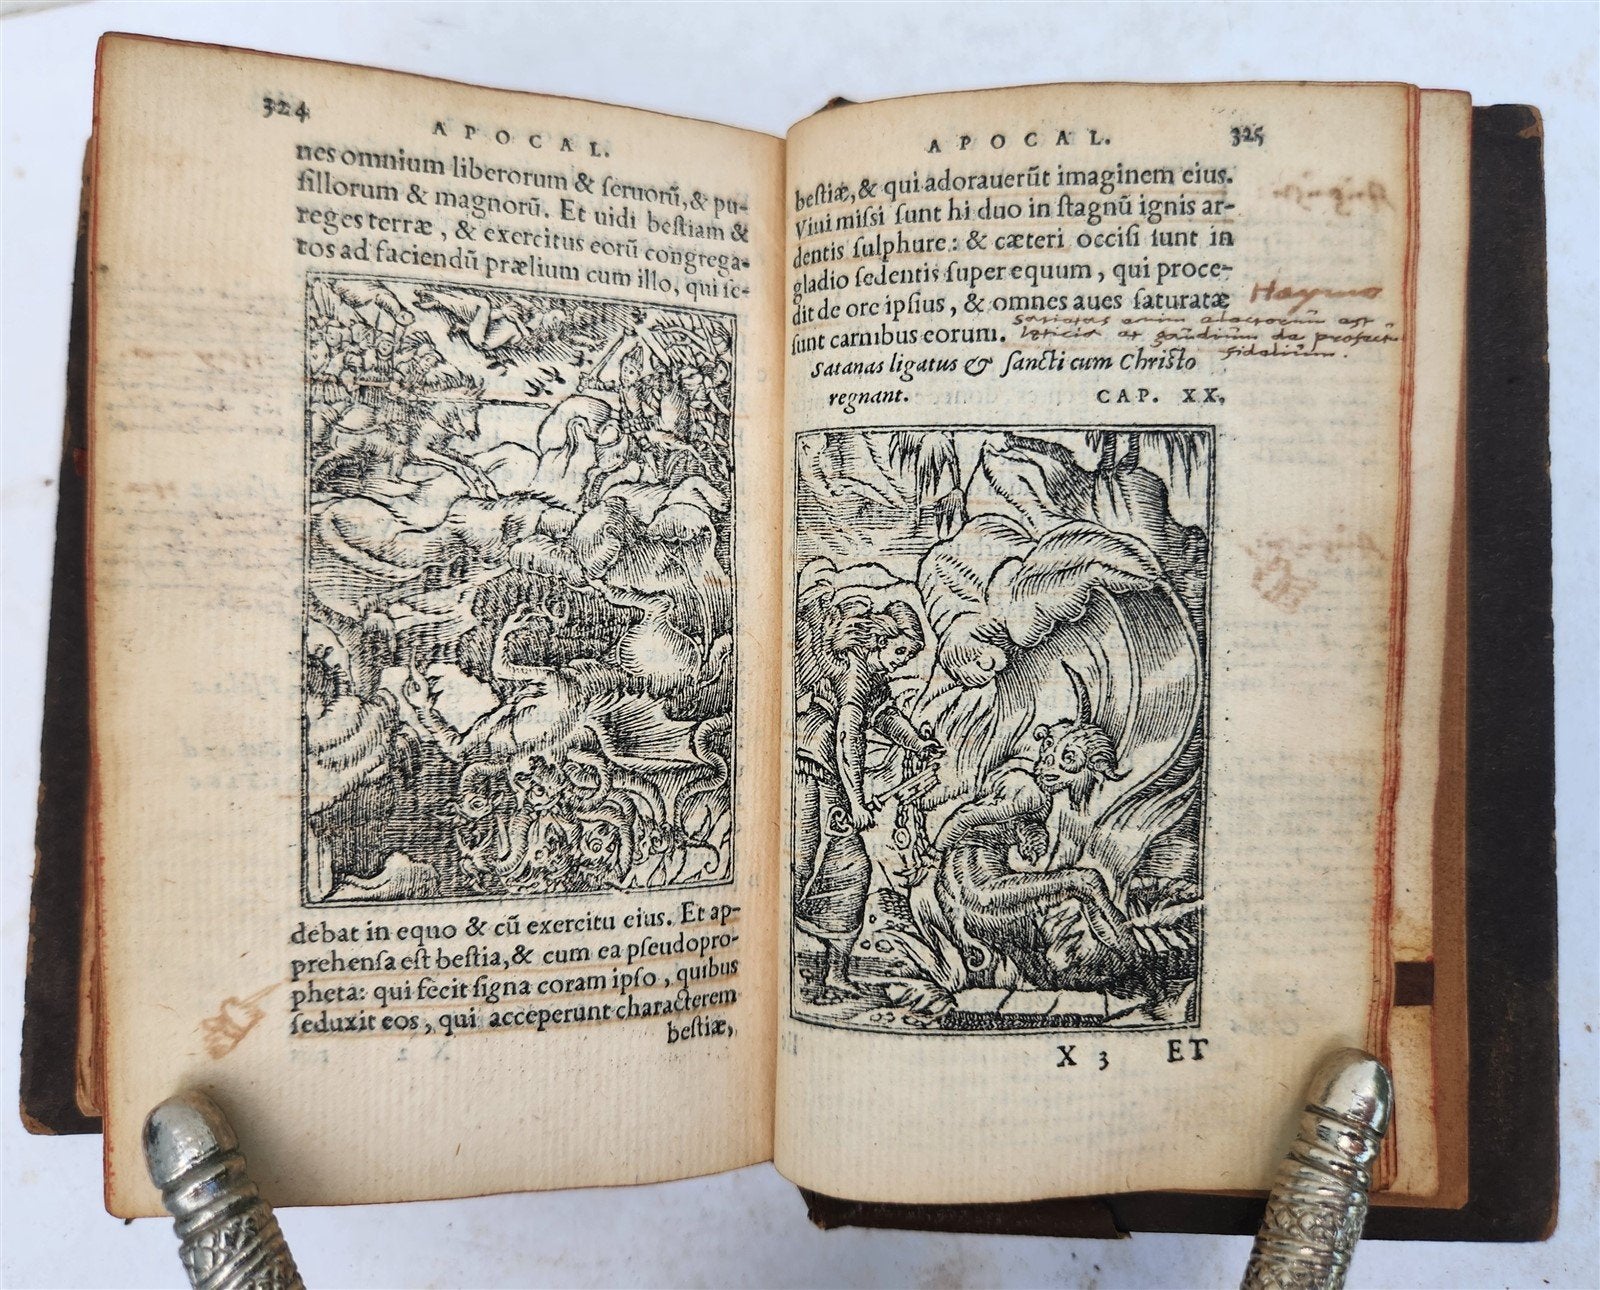 324
APOCAL.
nes omnium liberorum & ſeruorũ, & pu-
ſillorum & magnorũ. Et uidi beſtiam &
reges terræ, & exercitus eorũ congrega-
tos ad faciendũ prælium cum illo, qui ſe-
debat in equo & cũ exercitu eius. Et ap-
prehenſa eſt beſtia, & cum ea pſeudopro-
pheta: qui fecit ſigna coram ipſo, quibus
ſeduxit eos, qui acceperunt characterem
beſtiæ,
APOCAL.
325
beſtiæ, & qui adorauerũt imaginem eius.
Viui miſſi ſunt hi duo in ſtagnũ ignis ar-
dentis ſulphure: & cæteri occiſi ſunt in
gladio ſedentis ſuper equum, qui proce-
dit de ore ipſius, & omnes aues ſaturatæ
Haymo
ſunt carnibus eorum.
enim est
leticia et gaudium de profectu
fidelium.
Satanas ligatus & ſancti cum Chriſto
regnant.
CAP. XX.
X 3
ET